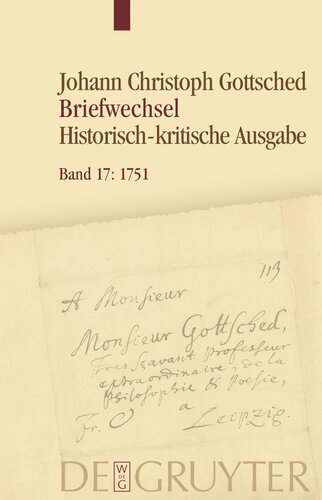 Johann Christoph Gottsched
Briefwechsel
Historisch-kritische Ausgabe
Band 17: 1751
113
A Monsieur
Monsieur Gottsched,
Tres scavant Professeur
extraordinaire, de la
Philosophie & Poesie,
Fr. a
Leipzig.
DE GRUYTER
W
DE
G